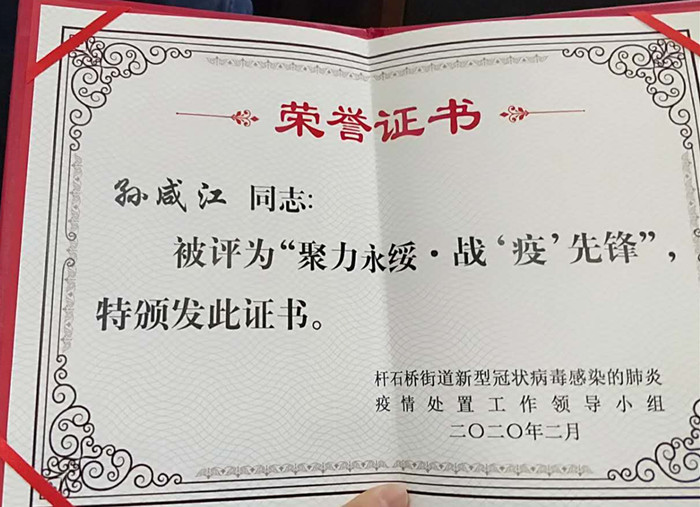 荣誉证书
孙咸江 同志：
被评为“聚力永绥·战‘疫’先锋”，
特颁发此证书。
杆石桥街道新型冠状病毒感染的肺炎
疫情处置工作领导小组
二〇二〇年二月